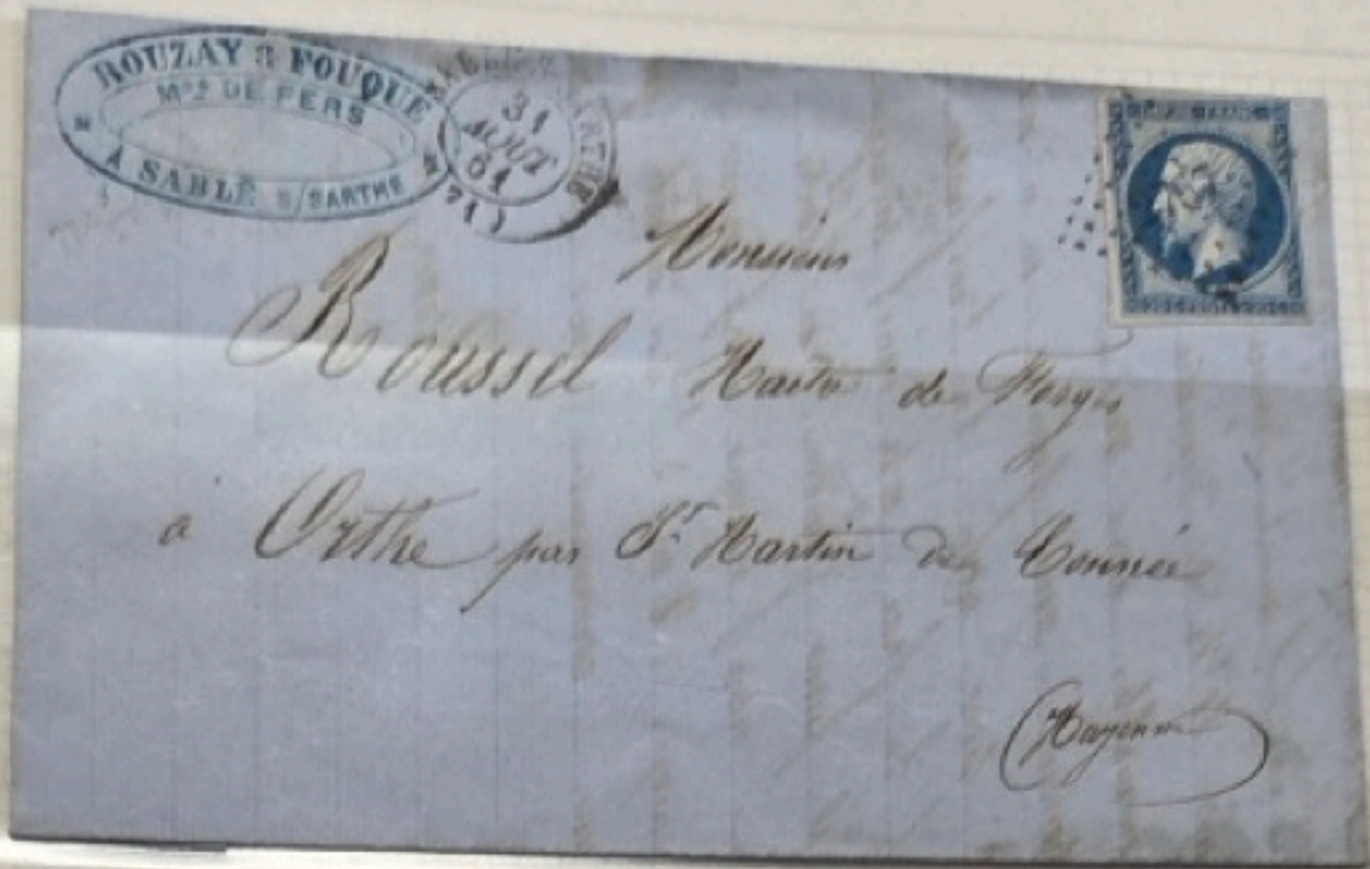 ROUZAY & FOUQUE
Mds DE FERS
A SABLÉ S/SARTHE
SARTHE
31
AOUT
61
(71)
Monsieur
Roussel Maitre de Forges
a Orthe par St Martin de Connée
(Mayenne)